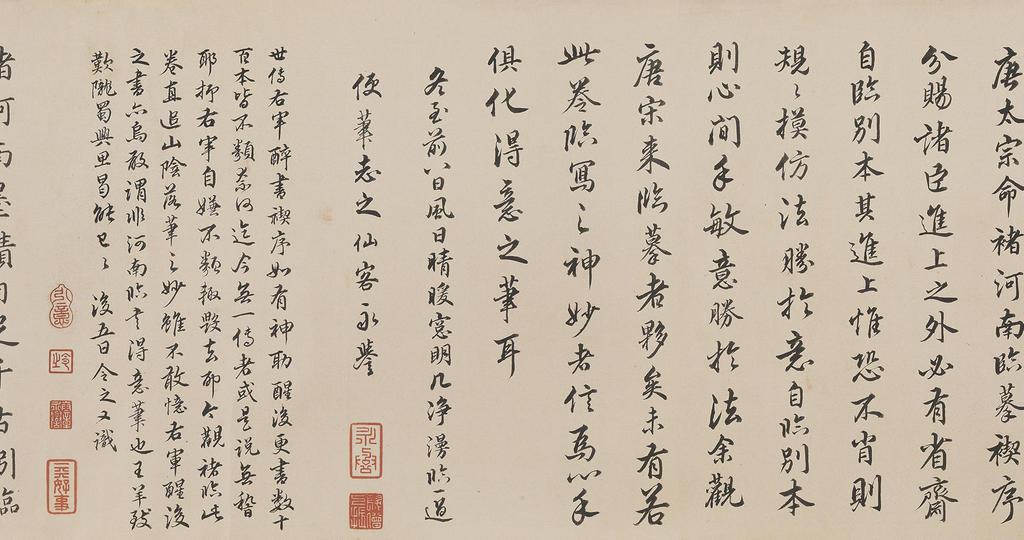 唐太宗命褚河南臨摹禊序
分賜諸臣進上之外必有省齋
自臨別本其進上惟恐不肖則
規〻摸仿法勝於意自臨別本
則心閒手敏意勝於法余觀
唐宋來臨摹者夥矣未有若
此卷臨寫之神妙者信為心手
俱化得意之筆耳
冬至前八日風日晴暖窓明几净漫臨一過
便筆志之仙客永譽
世傳右軍醉書禊序如有神助醒後更書數十
百本皆不類奈何迄今無一傳者或是說無稽
耶抑右軍自嫌不類輒毀去耶今觀褚臨此
卷直追山陰落筆之妙雖不敢憶右軍醒後
之書亦烏敢謂非河南臨之得意筆也王羊致
歎隴蜀興思曷能已〻 後五日令之又識